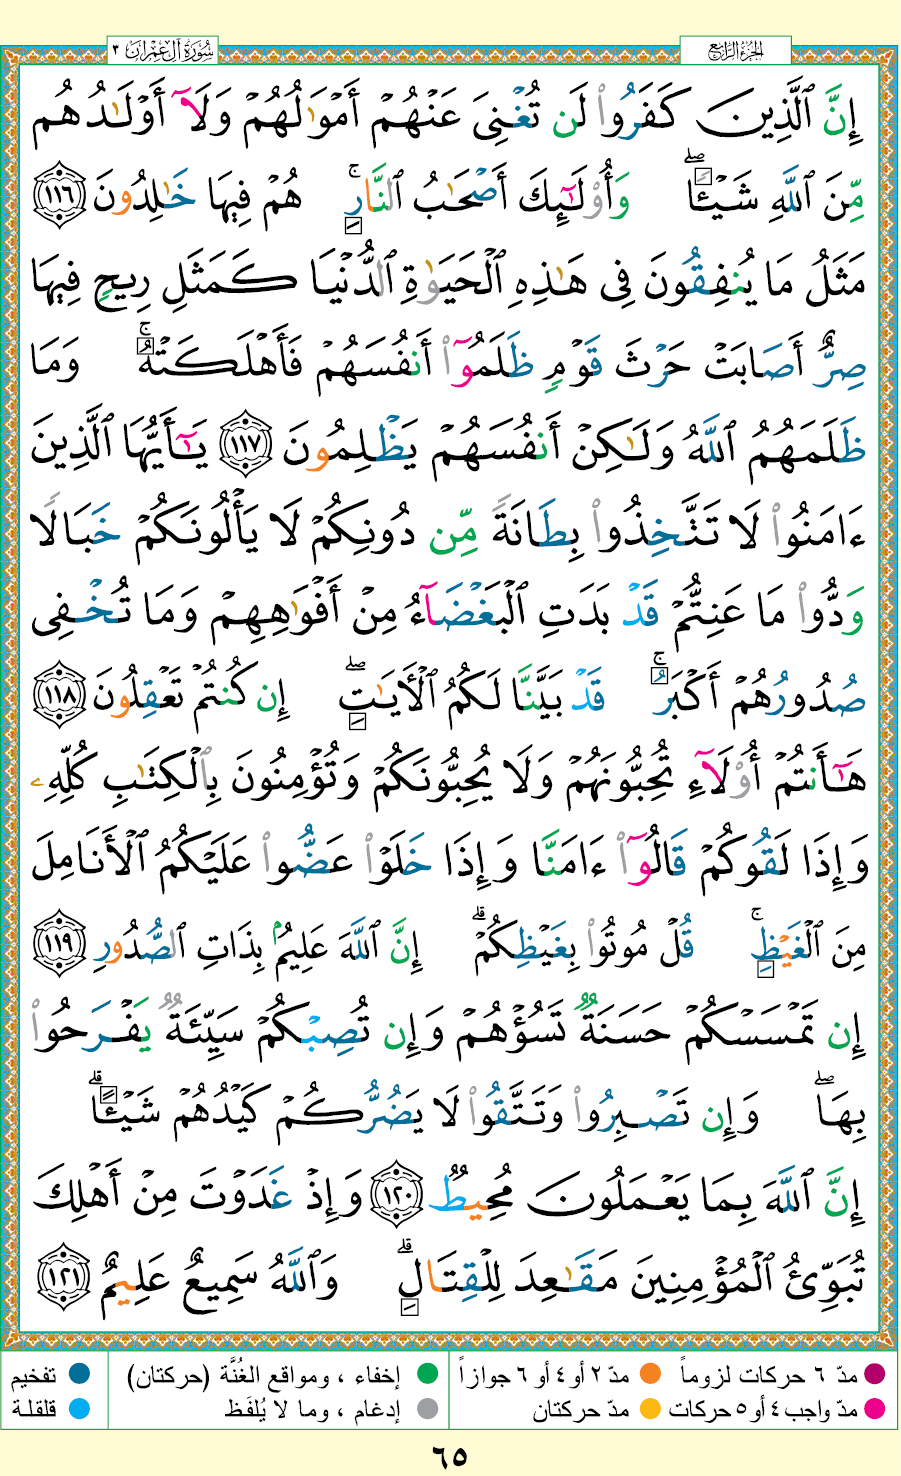 الجزء الرابع
سورة آل عمران ٣
إِنَّ ٱلَّذِينَ كَفَرُوا۟ لَن تُغْنِىَ عَنْهُمْ أَمْوَٰلُهُمْ وَلَآ أَوْلَـٰدُهُم
مِّنَ ٱللَّهِ شَيْـًٔا ۖ وَأُو۟لَـٰٓئِكَ أَصْحَـٰبُ ٱلنَّارِ ۚ هُمْ فِيهَا خَـٰلِدُونَ ١١٦
مَثَلُ مَا يُنفِقُونَ فِى هَـٰذِهِ ٱلْحَيَوٰةِ ٱلدُّنْيَا كَمَثَلِ رِيحٍ فِيهَا
صِرٌّ أَصَابَتْ حَرْثَ قَوْمٍ ظَلَمُوٓا۟ أَنفُسَهُمْ فَأَهْلَكَتْهُ ۚ وَمَا
ظَلَمَهُمُ ٱللَّهُ وَلَـٰكِنْ أَنفُسَهُمْ يَظْلِمُونَ ١١٧ يَـٰٓأَيُّهَا ٱلَّذِينَ
ءَامَنُوا۟ لَا تَتَّخِذُوا۟ بِطَانَةً مِّن دُونِكُمْ لَا يَأْلُونَكُمْ خَبَالًا
وَدُّوا۟ مَا عَنِتُّمْ قَدْ بَدَتِ ٱلْبَغْضَآءُ مِنْ أَفْوَٰهِهِمْ وَمَا تُخْفِى
صُدُورُهُمْ أَكْبَرُ ۚ قَدْ بَيَّنَّا لَكُمُ ٱلْـَٔايَـٰتِ ۖ إِن كُنتُمْ تَعْقِلُونَ ١١٨
هَـٰٓأَنتُمْ أُو۟لَآءِ تُحِبُّونَهُمْ وَلَا يُحِبُّونَكُمْ وَتُؤْمِنُونَ بِٱلْكِتَـٰبِ كُلِّهِۦ
وَإِذَا لَقُوكُمْ قَالُوٓا۟ ءَامَنَّا وَإِذَا خَلَوْا۟ عَضُّوا۟ عَلَيْكُمُ ٱلْأَنَامِلَ
مِنَ ٱلْغَيْظِ ۚ قُلْ مُوتُوا۟ بِغَيْظِكُمْ ۗ إِنَّ ٱللَّهَ عَلِيمٌۢ بِذَاتِ ٱلصُّدُورِ ١١٩
إِن تَمْسَسْكُمْ حَسَنَةٌ تَسُؤْهُمْ وَإِن تُصِبْكُمْ سَيِّئَةٌ يَفْرَحُوا۟
بِهَا ۖ وَإِن تَصْبِرُوا۟ وَتَتَّقُوا۟ لَا يَضُرُّكُمْ كَيْدُهُمْ شَيْـًٔا ۗ
إِنَّ ٱللَّهَ بِمَا يَعْمَلُونَ مُحِيطٌ ١٢٠ وَإِذْ غَدَوْتَ مِنْ أَهْلِكَ
تُبَوِّئُ ٱلْمُؤْمِنِينَ مَقَـٰعِدَ لِلْقِتَالِ ۗ وَٱللَّهُ سَمِيعٌ عَلِيمٌ ١٢١
مدّ ٦ حركات لزوماً مدّ ٢ أو ٤ أو ٦ جوازاً إخفاء ، ومواقع الغُنَّة (حركتان) تفخيم
مدّ واجب ٤ أو ٥ حركات مدّ حركتان إدغام ، وما لا يُلفَظ قلقلة
٦٥